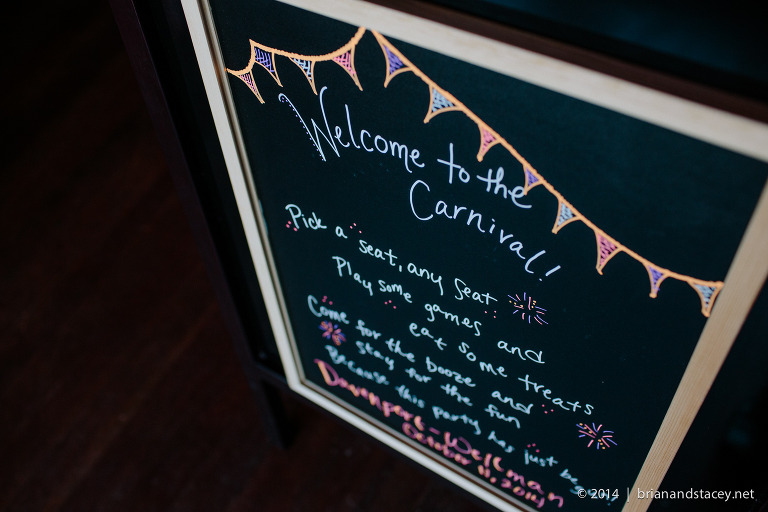 Welcome to the
Carnival!
Pick a seat, any seat
Play some games and
eat some treats
Come for the booze and
stay for the fun
Because this party has just
Davenport-Wellman
October 11, 2014
© 2014 | brianandstacey.net